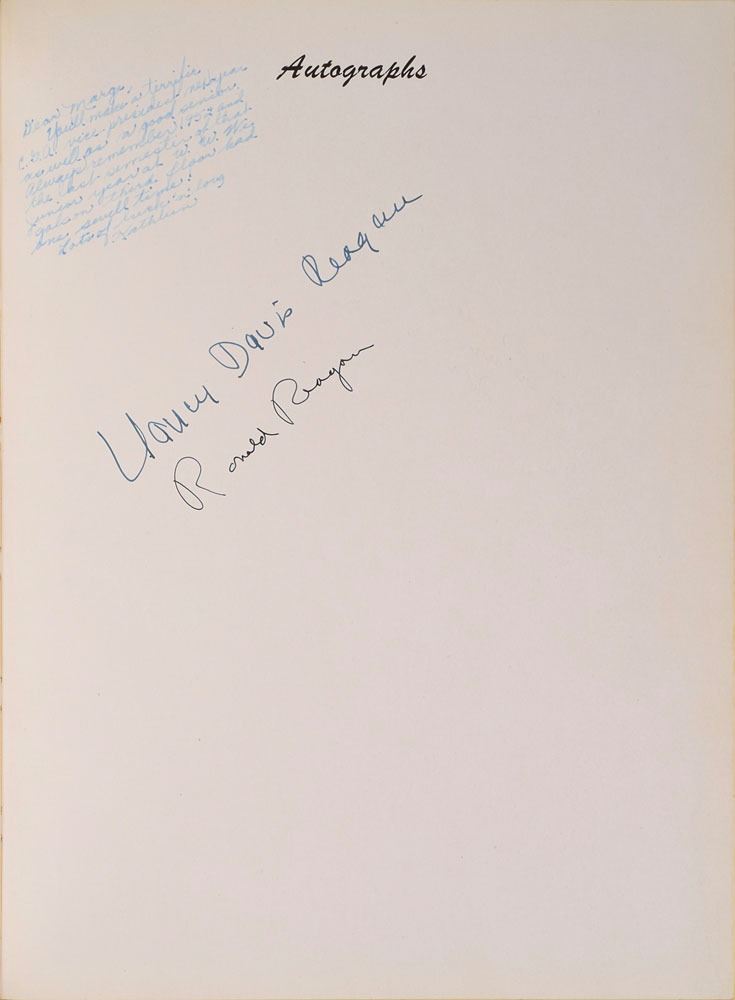 Autographs
Dear Marge,
You'll make a terrific
vice-president next year
as well as a good senior.
Always remember 1952 and
the last semester of that
junior year at W. W. We
gals on third floor had
one swell time!
Lots of luck 'n long
Kathleen
Nancy Davis Reagan
Ronald Reagan